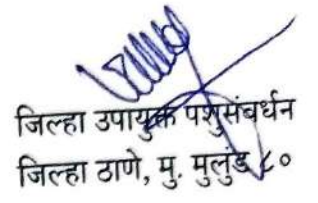 जिल्हा उपायुक्त पशुसंवर्धन
जिल्हा ठाणे, मु. मुलुंड ८०